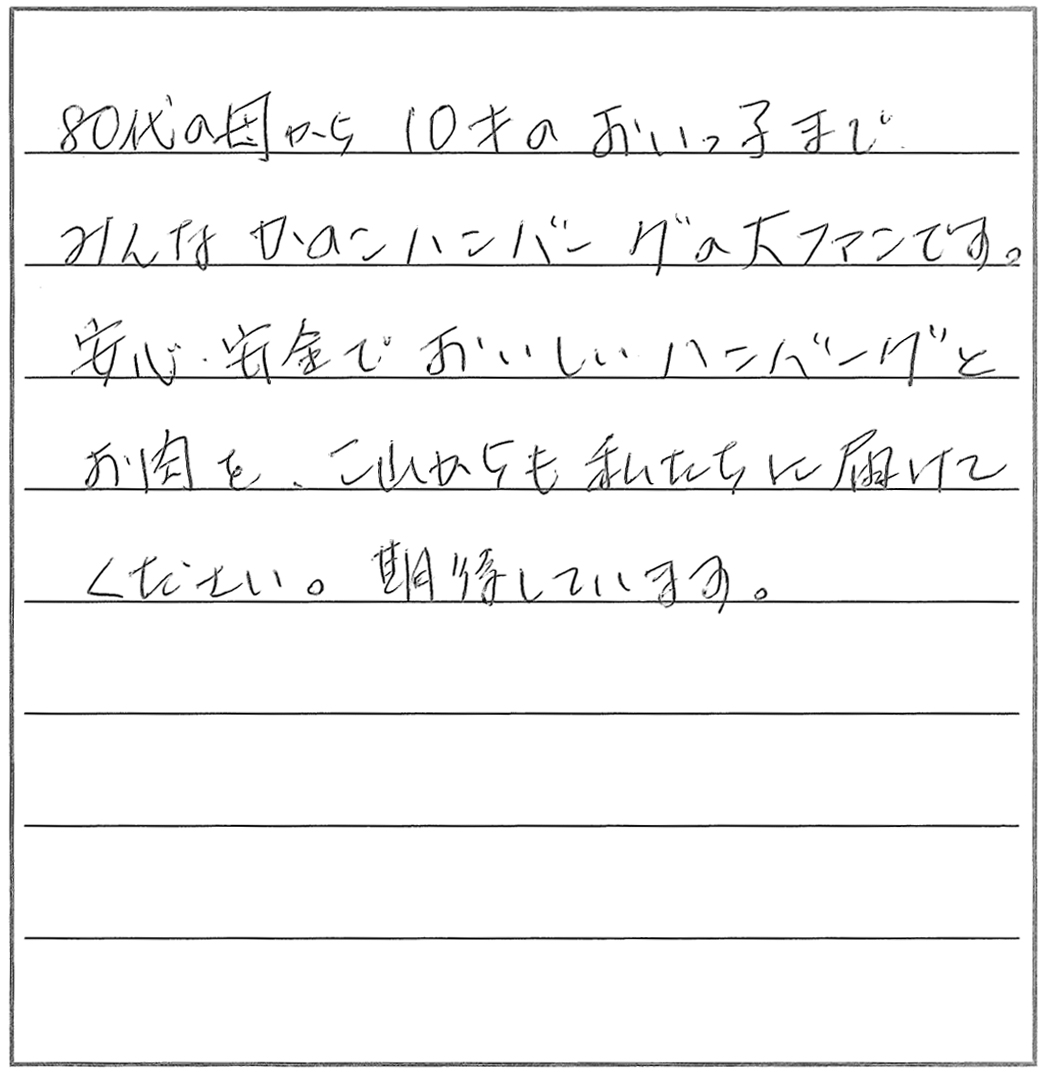 80代の母から10才のおいっ子まで
みんなカロンハンバーグの大ファンです。
安心・安全でおいしいハンバーグと
お肉を、これからも私たちに届けて
ください。期待しています。